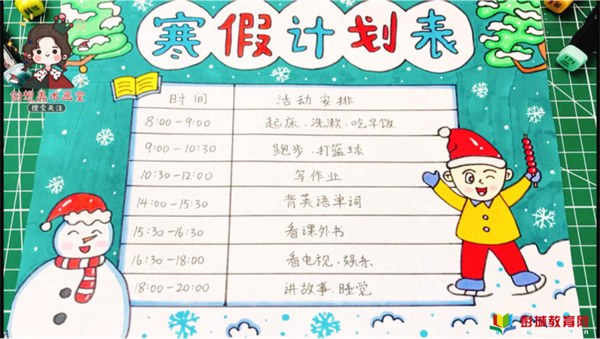 寒假计划表
创想美术画室
搜索关注
时间 活动安排
8:00-9:00 起床、洗漱、吃早饭
9:00-10:30 跑步、打篮球
10:30-12:00 写作业
14:00-15:30 背英语单词
15:30-16:30 看课外书
16:30-18:00 看电视、娱乐
18:00-20:00 讲故事、睡觉
彭城教育网